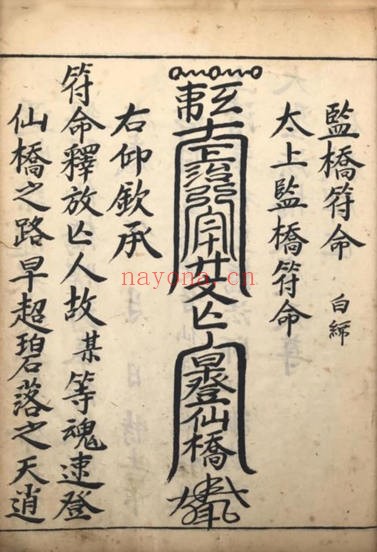 監橋符命 白
太上監橋符命
早登仙橋
右仰欽承
符命釋放亡人故某等魂速登
仙橋之路早超碧落之天逍
nayona.cn